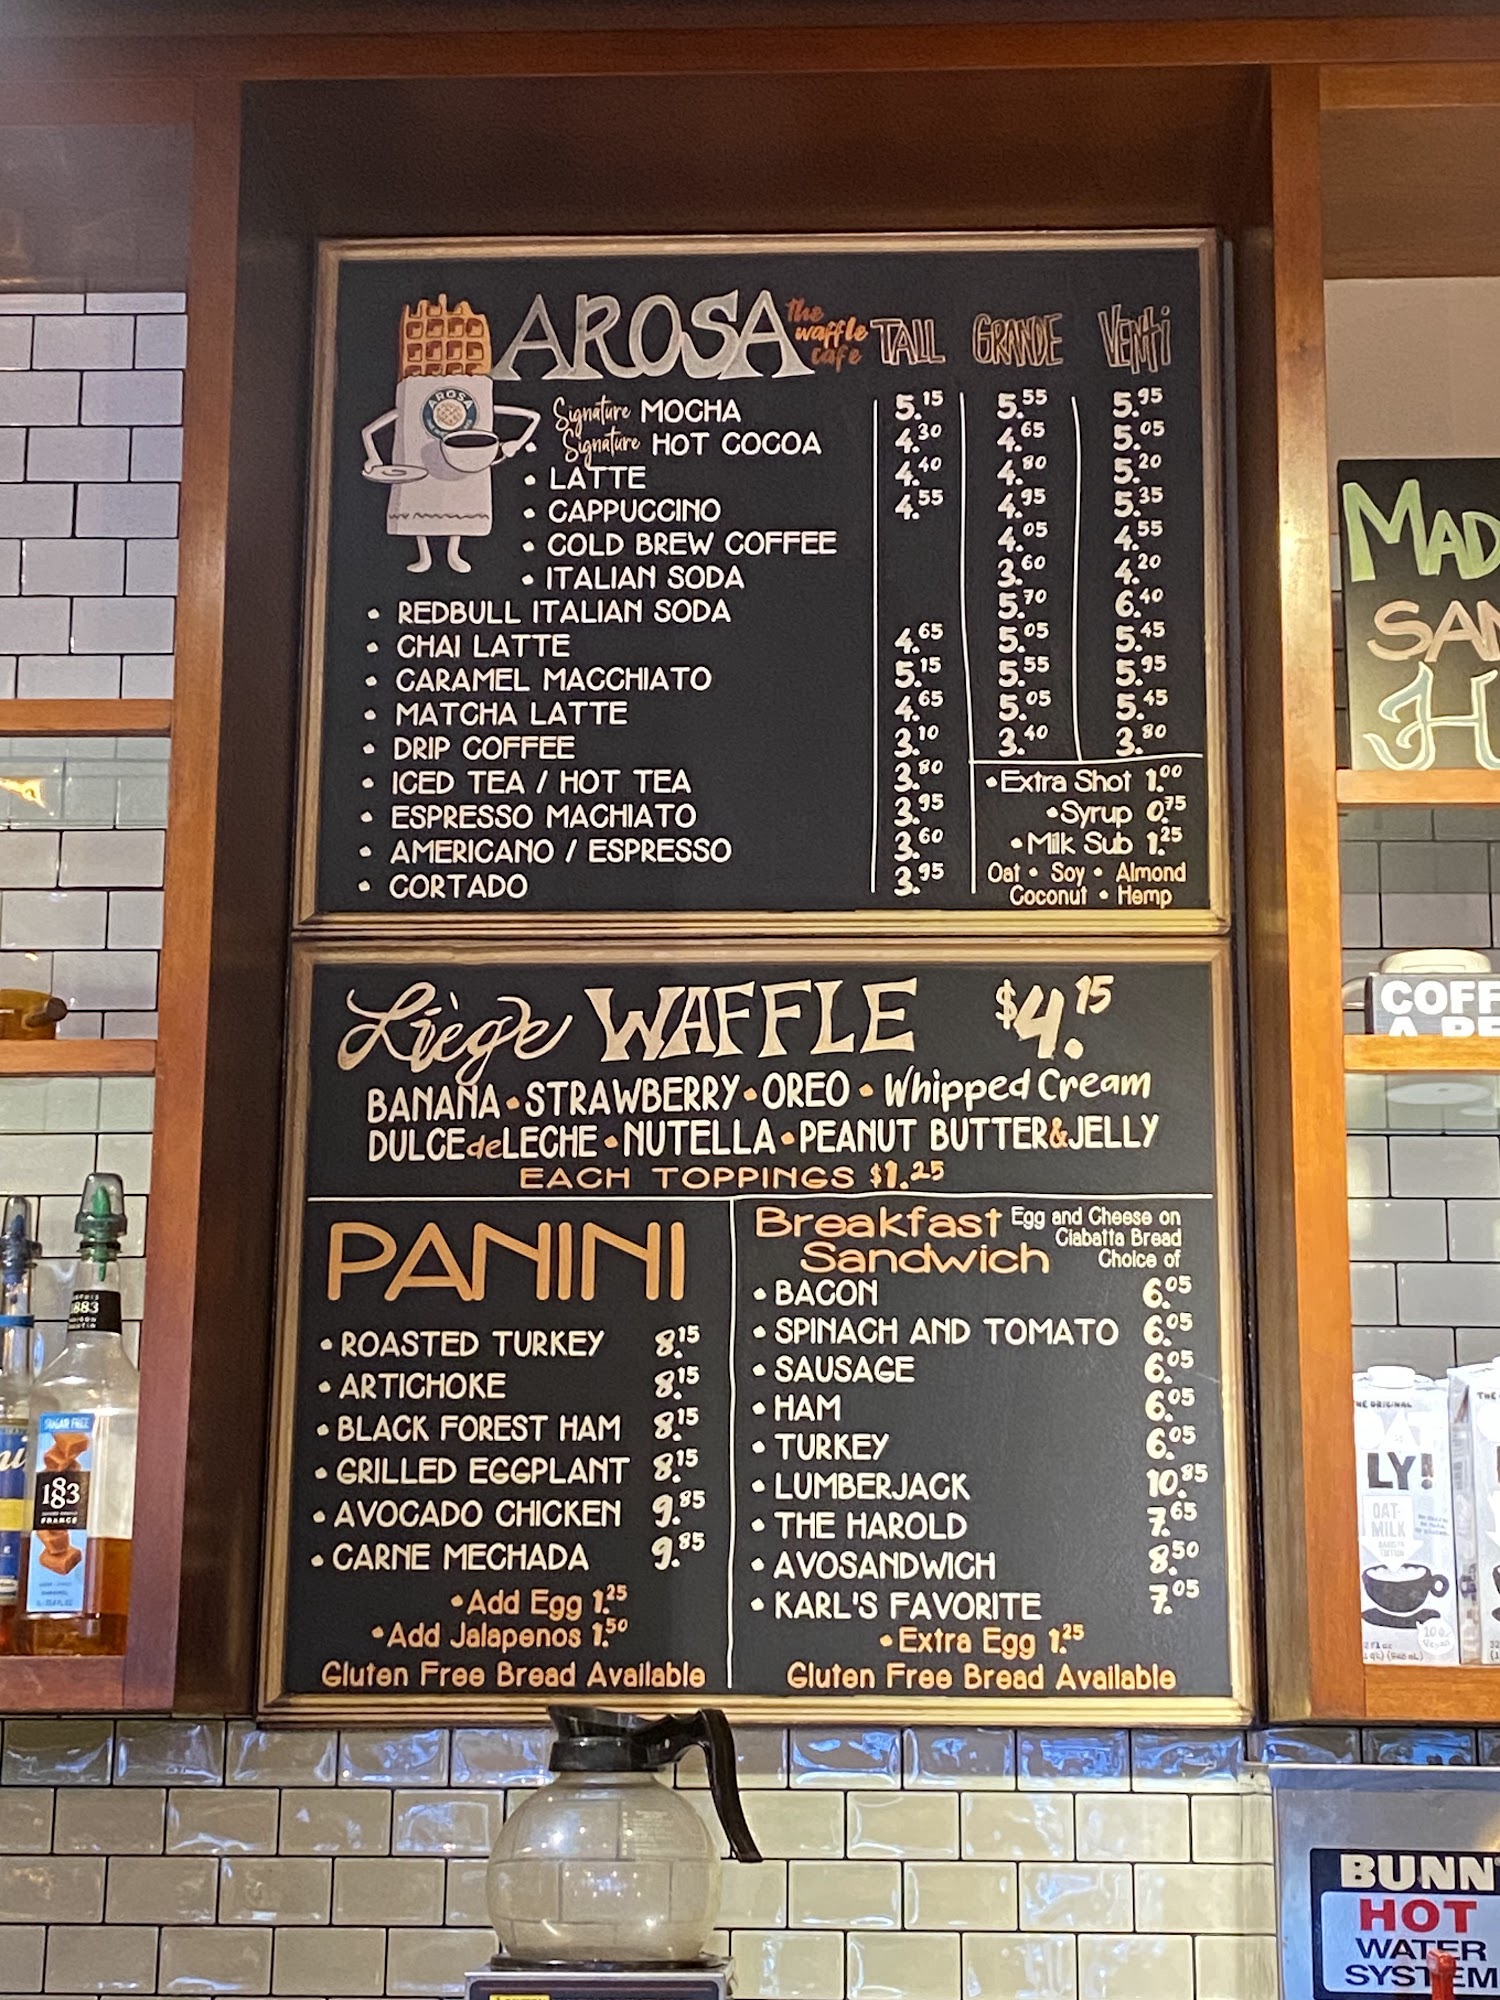 AROSA the waffle cafe TALL GRANDE VENTI
AROSA
Signature MOCHA 5.15 5.55 5.95
• Signature HOT COCOA 4.30 4.65 5.05
• LATTE 4.40 4.80 5.20
• CAPPUCCINO 4.55 4.95 5.35
• COLD BREW COFFEE 4.05 4.55
• ITALIAN SODA 3.60 4.20
• REDBULL ITALIAN SODA 5.70 6.40
• CHAI LATTE 4.65 5.05 5.45
• CARAMEL MACCHIATO 5.15 5.55 5.95
• MATCHA LATTE 4.65 5.05 5.45
• DRIP COFFEE 3.10 3.40 3.80
• ICED TEA / HOT TEA 3.80
• ESPRESSO MACHIATO 3.95
• AMERICANO / ESPRESSO 3.60
• CORTADO 3.95
• Extra Shot 1.00
• Syrup 0.75
• Milk Sub 1.25
Oat • Soy • Almond
Coconut • Hemp
Liège WAFFLE $4.15
BANANA • STRAWBERRY • OREO • Whipped Cream
DULCE de LECHE • NUTELLA • PEANUT BUTTER & JELLY
EACH TOPPINGS $1.25
PANINI
• ROASTED TURKEY 8.15
• ARTICHOKE 8.15
• BLACK FOREST HAM 8.15
• GRILLED EGGPLANT 8.15
• AVOCADO CHICKEN 9.85
• CARNE MECHADA 9.85
• Add Egg 1.25
• Add Jalapenos 1.50
Gluten Free Bread Available
Breakfast Sandwich
Egg and Cheese on
Ciabatta Bread
Choice of
• BACON 6.05
• SPINACH AND TOMATO 6.05
• SAUSAGE 6.05
• HAM 6.05
• TURKEY 6.05
• LUMBERJACK 10.85
• THE HAROLD 7.65
• AVOSANDWICH 8.50
• KARL'S FAVORITE 7.05
• Extra Egg 1.25
Gluten Free Bread Available
MAD
SAN
H
COFF
1883
SUGAR FREE
1883
FRANCE
THE ORIGINAL
LY!
OAT-
MILK
BUNN
HOT
WATER
SYSTEM